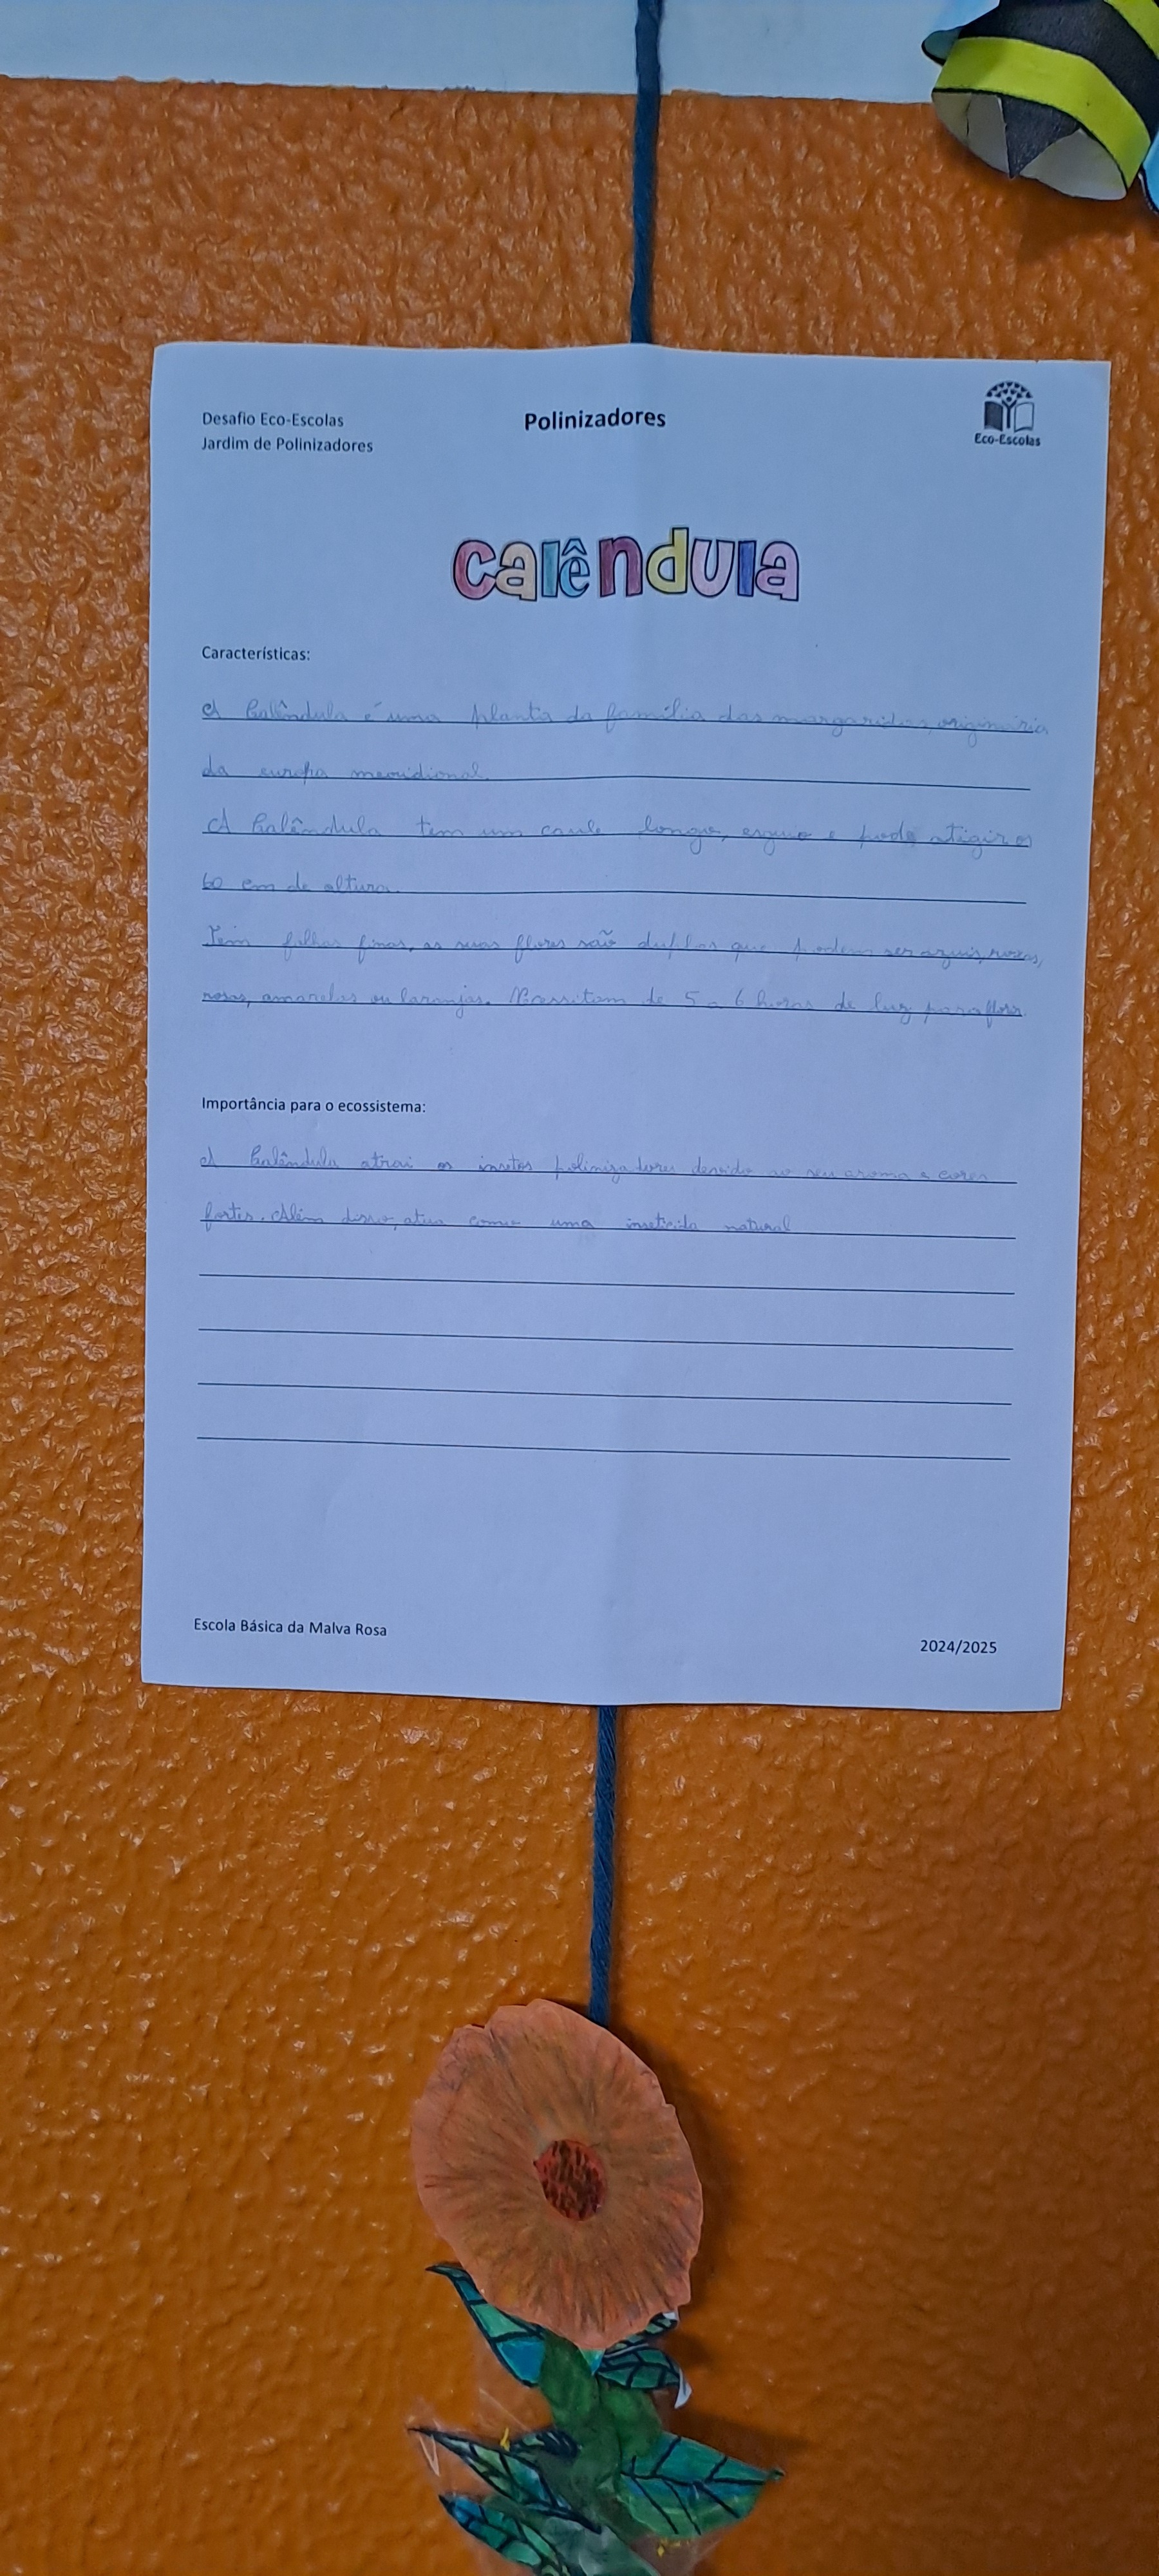 Desafio Eco-Escolas
Jardim de Polinizadores
Polinizadores
Eco-Escolas
calêndula
Características:
A Calêndula é uma planta da família das margaridas, originária
da europa meridional.
A Calêndula tem um caule longo, erguo e pode atigir os
60 cm de altura.
Tem folhas finas, as suas flores são duplas que podem ser azuis, roxas,
rosas, amarelas ou laranjas. Necessitam de 5 a 6 horas de luz para florir.
Importância para o ecossistema:
A Calêndula atrai os insetos polinizadores devido ao seu aroma e cores
fortes. Além disso, atua como uma inseticida natural
Escola Básica da Malva Rosa
2024/2025